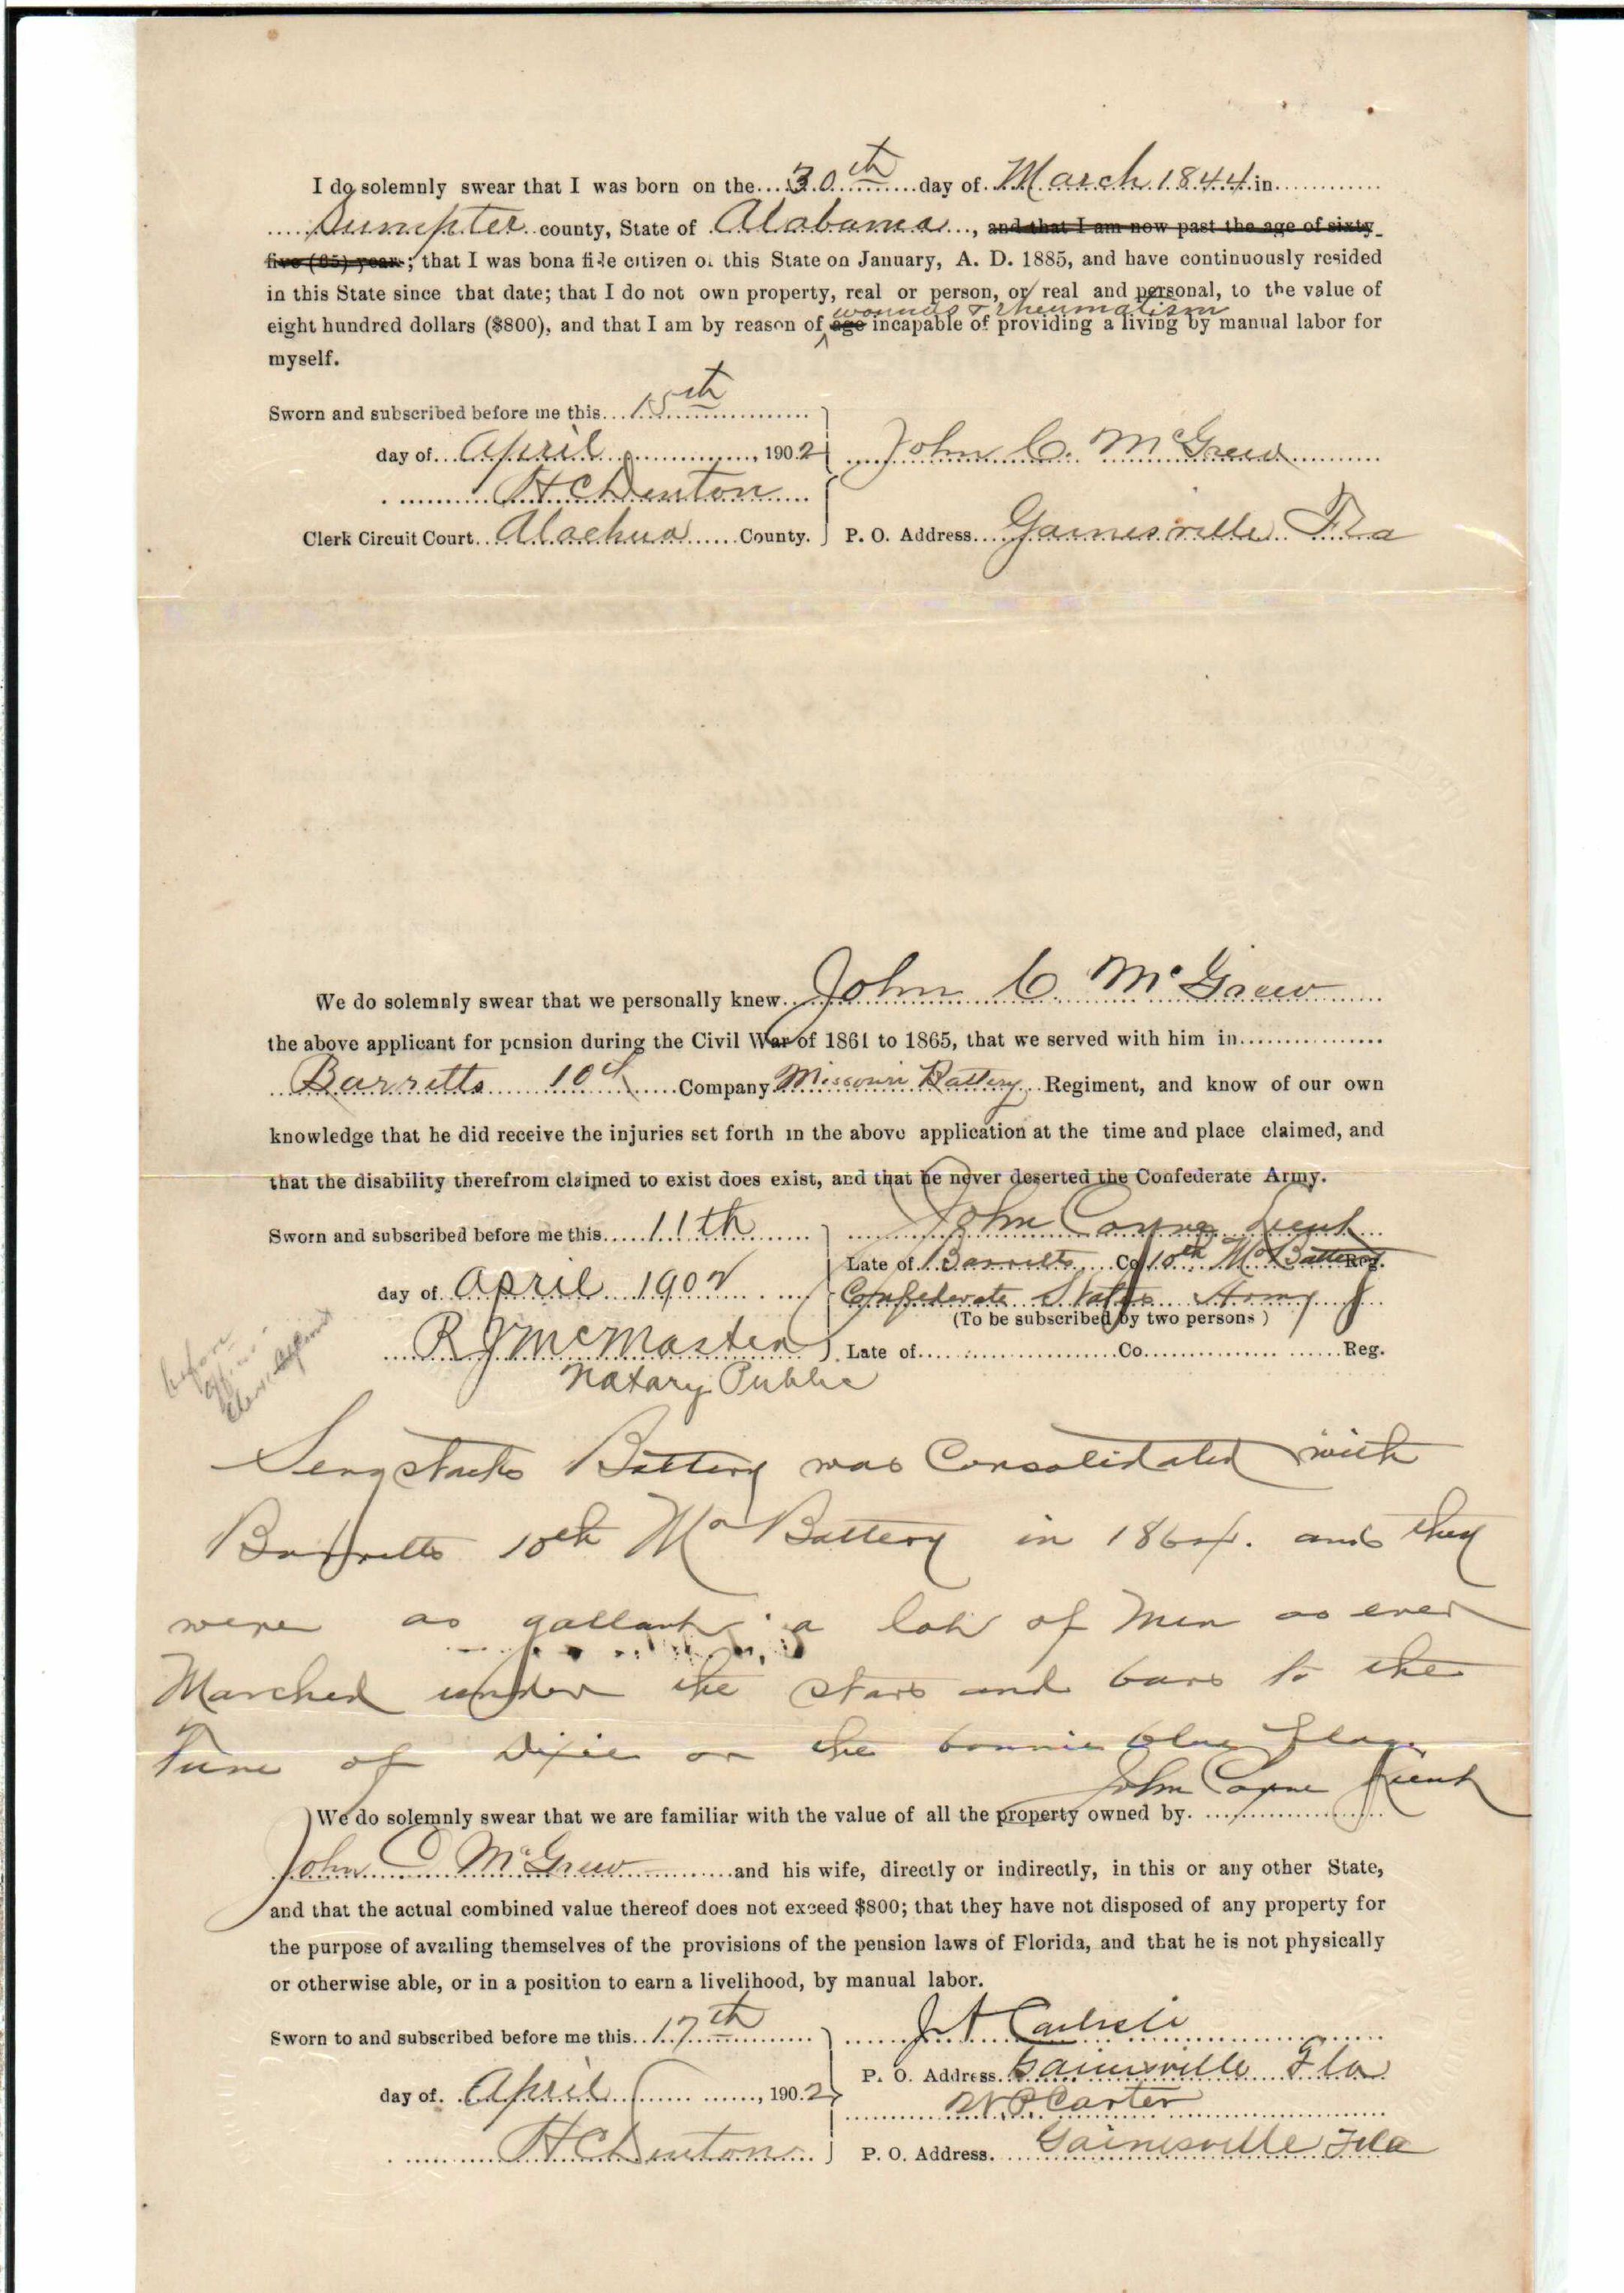 I do solemnly swear that I was born on the 30th day of March 1844 in
Sumpter county, State of Alabama, and that I am now past the age of sixty-
five (65) year; that I was bona fide citizen of this State on January, A. D. 1885, and have continuously resided
in this State since that date; that I do not own property, real or person, or real and personal, to the value of
wounds & rheumatism
eight hundred dollars ($800), and that I am by reason of age incapable of providing a living by manual labor for
myself.
Sworn and subscribed before me this 15th
day of April, 1902
John C. McGrew
H C Denton
Clerk Circuit Court Alachua County.
P. O. Address Gainesville Fla
We do solemnly swear that we personally knew John C McGrew
the above applicant for pension during the Civil War of 1861 to 1865, that we served with him in
Barretts 10th Company Missouri Battery Regiment, and know of our own
knowledge that he did receive the injuries set forth in the above application at the time and place claimed, and
that the disability therefrom claimed to exist does exist, and that he never deserted the Confederate Army.
Sworn and subscribed before me this 11th
John Coyne Lieut
Late of Barretts Co 10th Mo Battery Reg.
day of April 1902
Confederate States Army
(To be subscribed by two persons)
R J McMaster
Late of Co. Reg.
Notary Public
before
Sengstacks Battery was Consolidated with
Barretts 10th Mo Battery in 1864. and they
were as gallant a lot of Men as ever
Marched under the stars and bars to the
Tune of Dixie or the bonnie blue flag.
John Coyne Lieut
We do solemnly swear that we are familiar with the value of all the property owned by
John C McGrew and his wife, directly or indirectly, in this or any other State,
and that the actual combined value thereof does not exceed $800; that they have not disposed of any property for
the purpose of availing themselves of the provisions of the pension laws of Florida, and that he is not physically
or otherwise able, or in a position to earn a livelihood, by manual labor.
Sworn to and subscribed before me this 17th
Carlisle
P. O. Address. Gainesville Fla
day of. April, 1902
Carter
H C Denton
P. O. Address. Gainesville Fla